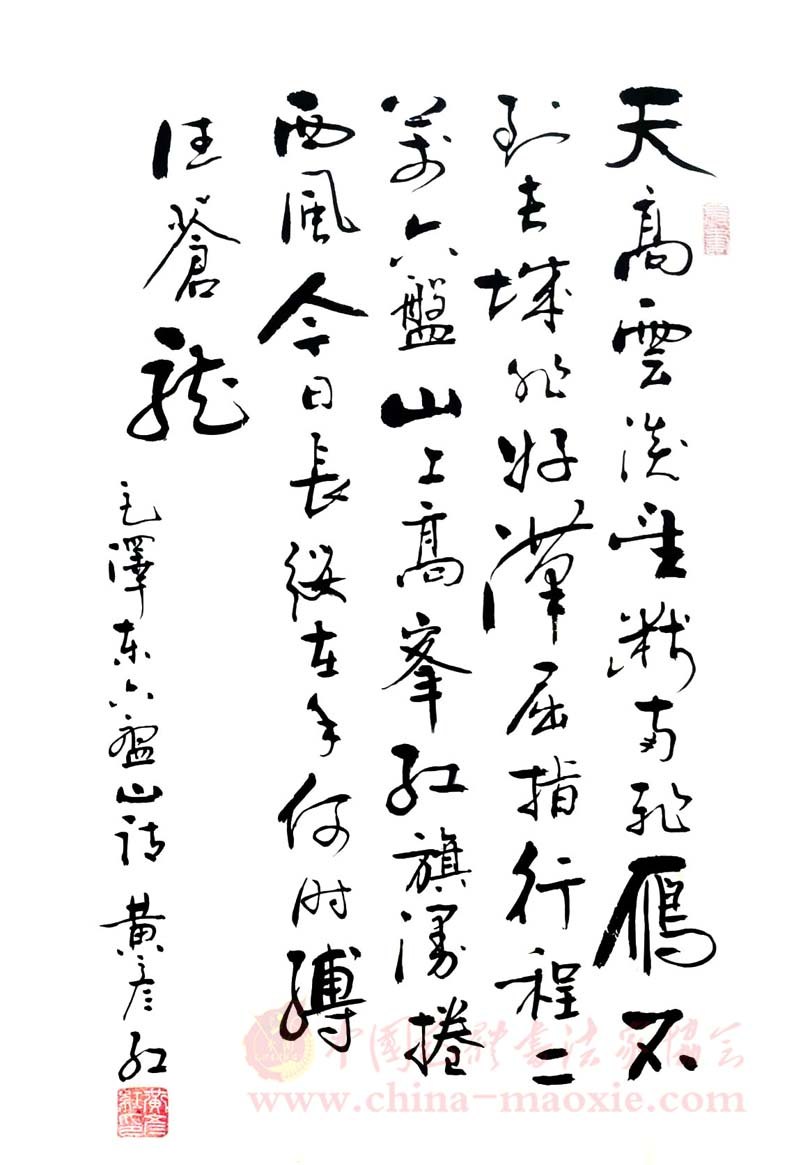 天高雲淡望斷南飛雁不
到長城非好漢屈指行程二
萬六盤山上高峯紅旗漫捲
西風今日長纓在手何時縛
住蒼龍
毛澤東六盤山詩 黄彦红
中國毛體書法家協會
www.china-maoxie.com